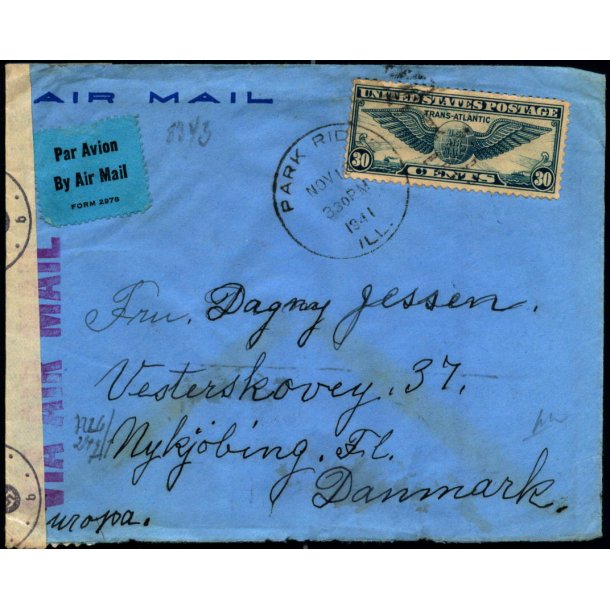 AIR MAIL
Par Avion
By Air Mail
FORM 2978
8843
UNITED STATES POSTAGE
TRANS-ATLANTIC
30 CENTS 30
PARK RID
NOV
3 30 PM
1941
ILL.
VIA AIR MAIL
Fru. Dagny Jessen.
Vesterskovvej. 37.
Nykjöbing. Fl.
Danmark.
uropa.
b
b